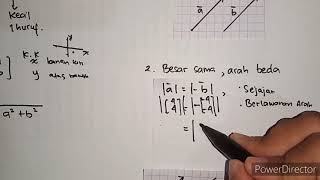 Kecil
1 huruf.
a
b
K.K
x kanan kiri
y atas bawah
a² + b²
2. Besar sama, arah beda
|a̅| = |-b̅| , • Sejajar
• Berlawanan Arah
= |
PowerDirector